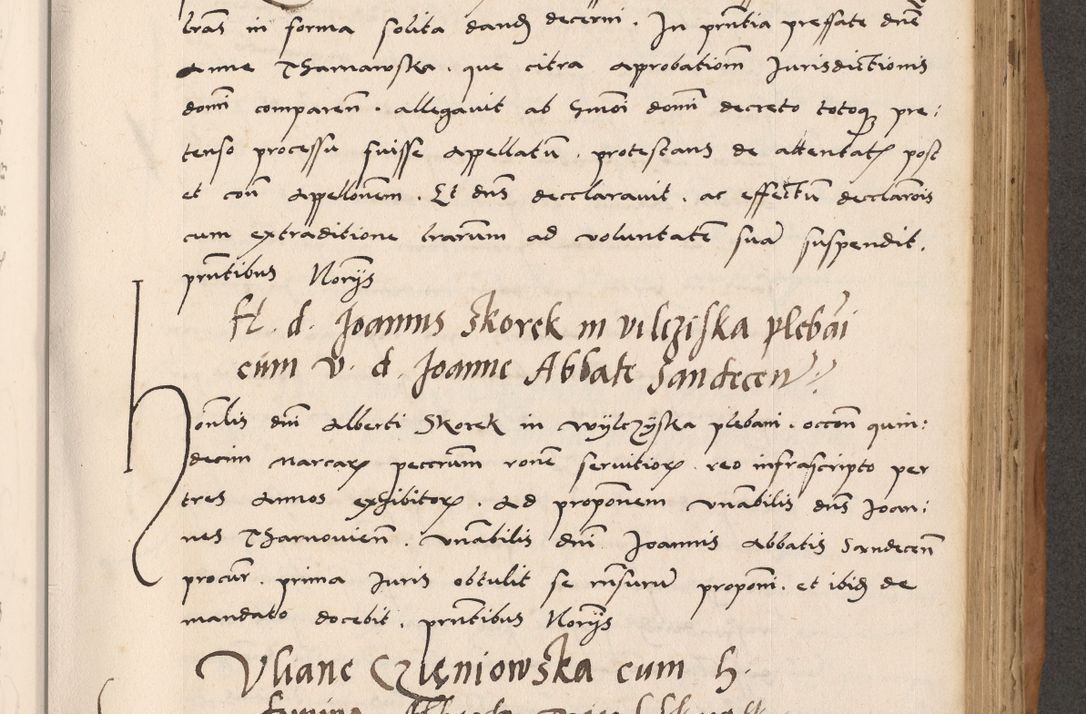 tras in forma solita dand decerni. In prntia preffate dne
Anne Tharnawska. que citra aprobationm Jurisdictionis
domi comparen. allegavit ab hmoi domi decreto totoq pre:
tenso processu fuisse appellatu. protestans de attentat post
et con appellonem. Et dns decclaravit. ac effectu decclarois
cum extraditione trarum ad voluntate sua suspendit.
prntibus Norys
ft. d. Joannis Skorek in vilcziska plebai
cum v. d. Joanne Abbate Sandecen
honlis dni Alberti Skorek in Wylczyska plebani. occon quin:
decim marcar peccrum rone servitior. reo infrascripto per
tres annos exhibitor. Ad proponem vnabilis dns Joan:
nes Tharnovien. vnabilis dni Joannis Abbatis Sandecen
procur. prima Juris obtulit se rnsuru proponi. et ibid de
mandato docebit. prntibus Norys
Vliane Czlęniowska cum h.